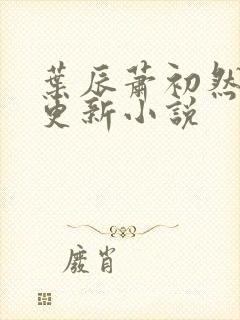 葉辰蕭初然
更新小說
廢肖